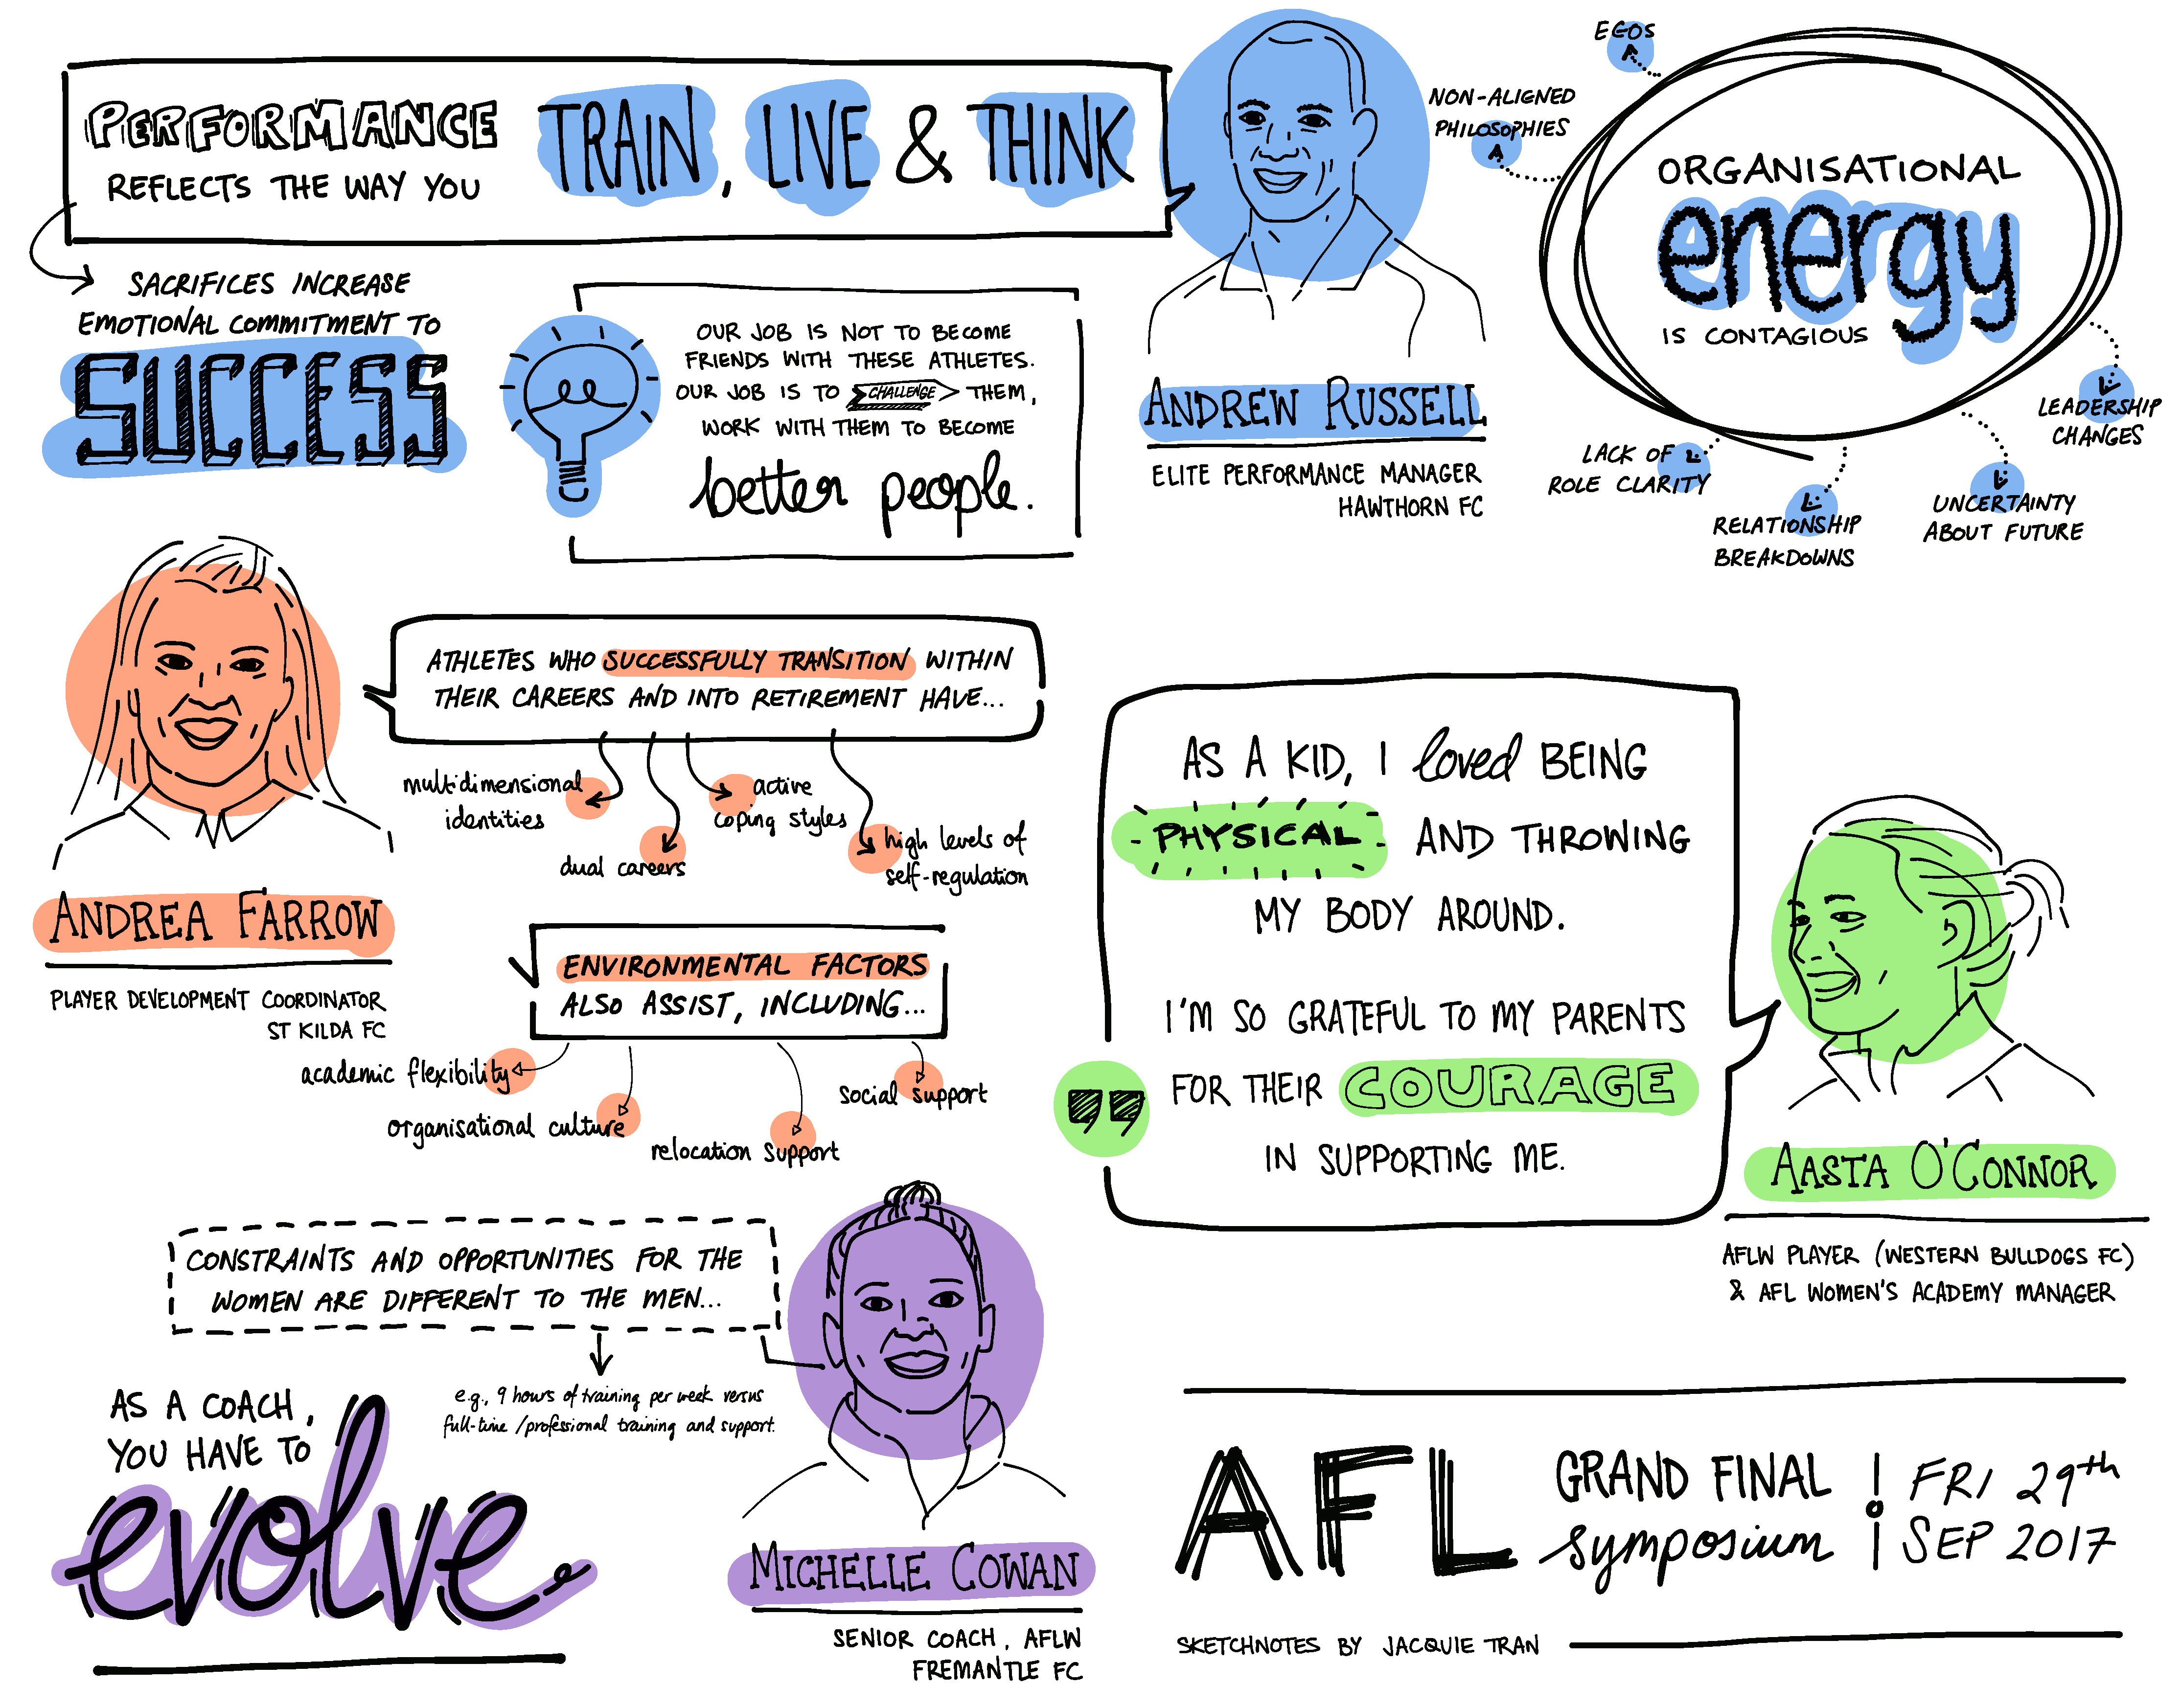 PERFORMANCE
REFLECTS THE WAY YOU
TRAIN, LIVE & THINK
SACRIFICES INCREASE
EMOTIONAL COMMITMENT TO
SUCCESS
OUR JOB IS NOT TO BECOME
FRIENDS WITH THESE ATHLETES.
OUR JOB IS TO CHALLENGE THEM,
WORK WITH THEM TO BECOME
better people.
ANDREW RUSSELL
ELITE PERFORMANCE MANAGER
HAWTHORN FC
EGOS
NON-ALIGNED
PHILOSOPHIES
ORGANISATIONAL
energy
IS CONTAGIOUS
LEADERSHIP
CHANGES
LACK OF
ROLE CLARITY
RELATIONSHIP
BREAKDOWNS
UNCERTAINTY
ABOUT FUTURE
ATHLETES WHO SUCCESSFULLY TRANSITION WITHIN
THEIR CAREERS AND INTO RETIREMENT HAVE...
multidimensional
identities
dual careers
active
coping styles
high levels of
self-regulation
ANDREA FARROW
PLAYER DEVELOPMENT COORDINATOR
ST KILDA FC
ENVIRONMENTAL FACTORS
ALSO ASSIST, INCLUDING...
academic flexibility
organisational culture
relocation support
social support
AS A KID, I loved BEING
PHYSICAL AND THROWING
MY BODY AROUND.
I'M SO GRATEFUL TO MY PARENTS
FOR THEIR COURAGE
IN SUPPORTING ME.
"
AASTA O'CONNOR
AFLW PLAYER (WESTERN BULLDOGS FC)
& AFL WOMEN'S ACADEMY MANAGER
CONSTRAINTS AND OPPORTUNITIES FOR THE
WOMEN ARE DIFFERENT TO THE MEN...
e.g., 9 hours of training per week versus
full-time/professional training and support.
AS A COACH,
YOU HAVE TO
evolve
MICHELLE COWAN
SENIOR COACH, AFLW
FREMANTLE FC
AFL
GRAND FINAL
symposium
FRI 29th
SEP 2017
SKETCHNOTES BY JACQUIE TRAN